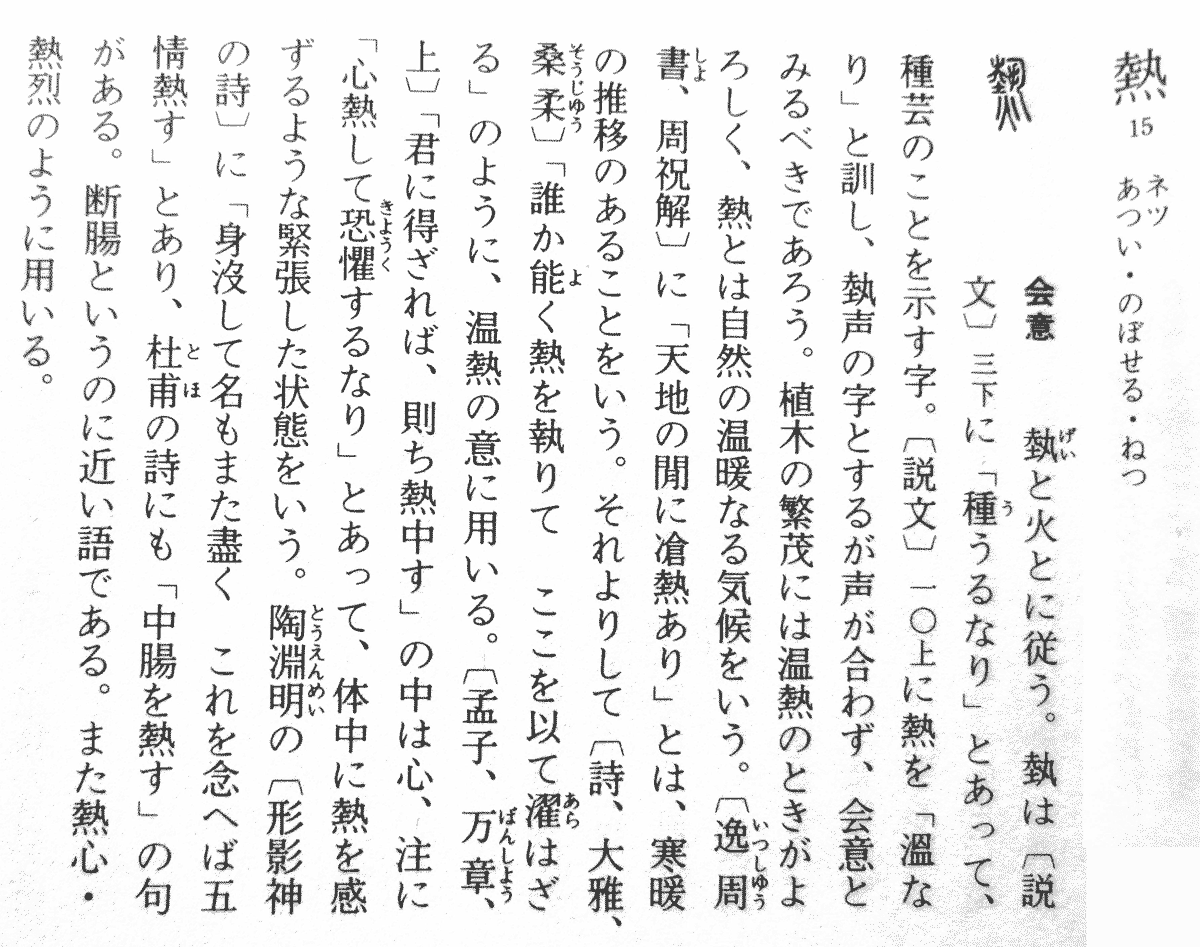 熱 15 ネツ
あつい・のぼせる・ねつ
げい
会意 埶と火とに従う。埶は〔説
う
文〕三下に「種うるなり」とあって、
種芸のことを示す字。〔説文〕一〇上に熱を「溫な
り」と訓し、埶声の字とするが声が合わず、会意と
みるべきであろう。植木の繁茂には温熱のときがよ
いつしゆう
ろしく、熱とは自然の温暖なる気候をいう。〔逸周
しよ
書、周祝解〕に「天地の閒に滄熱あり」とは、寒暖
の推移のあることをいう。それよりして〔詩、大雅、
そうじゆう よ あら
桑柔〕「誰か能く熱を執りて ここを以て濯はざ
ばんしよう
る」のように、温熱の意に用いる。〔孟子、万章、
上〕「君に得ざれば、則ち熱中す」の中は心、注に
きようく
「心熱して恐懼するなり」とあって、体中に熱を感
とうえんめい
ずるような緊張した状態をいう。陶淵明の〔形影神
の詩〕に「身沒して名もまた盡く これを念へば五
とほ
情熱す」とあり、杜甫の詩にも「中腸を熱す」の句
がある。断腸というのに近い語である。また熱心・
熱烈のように用いる。